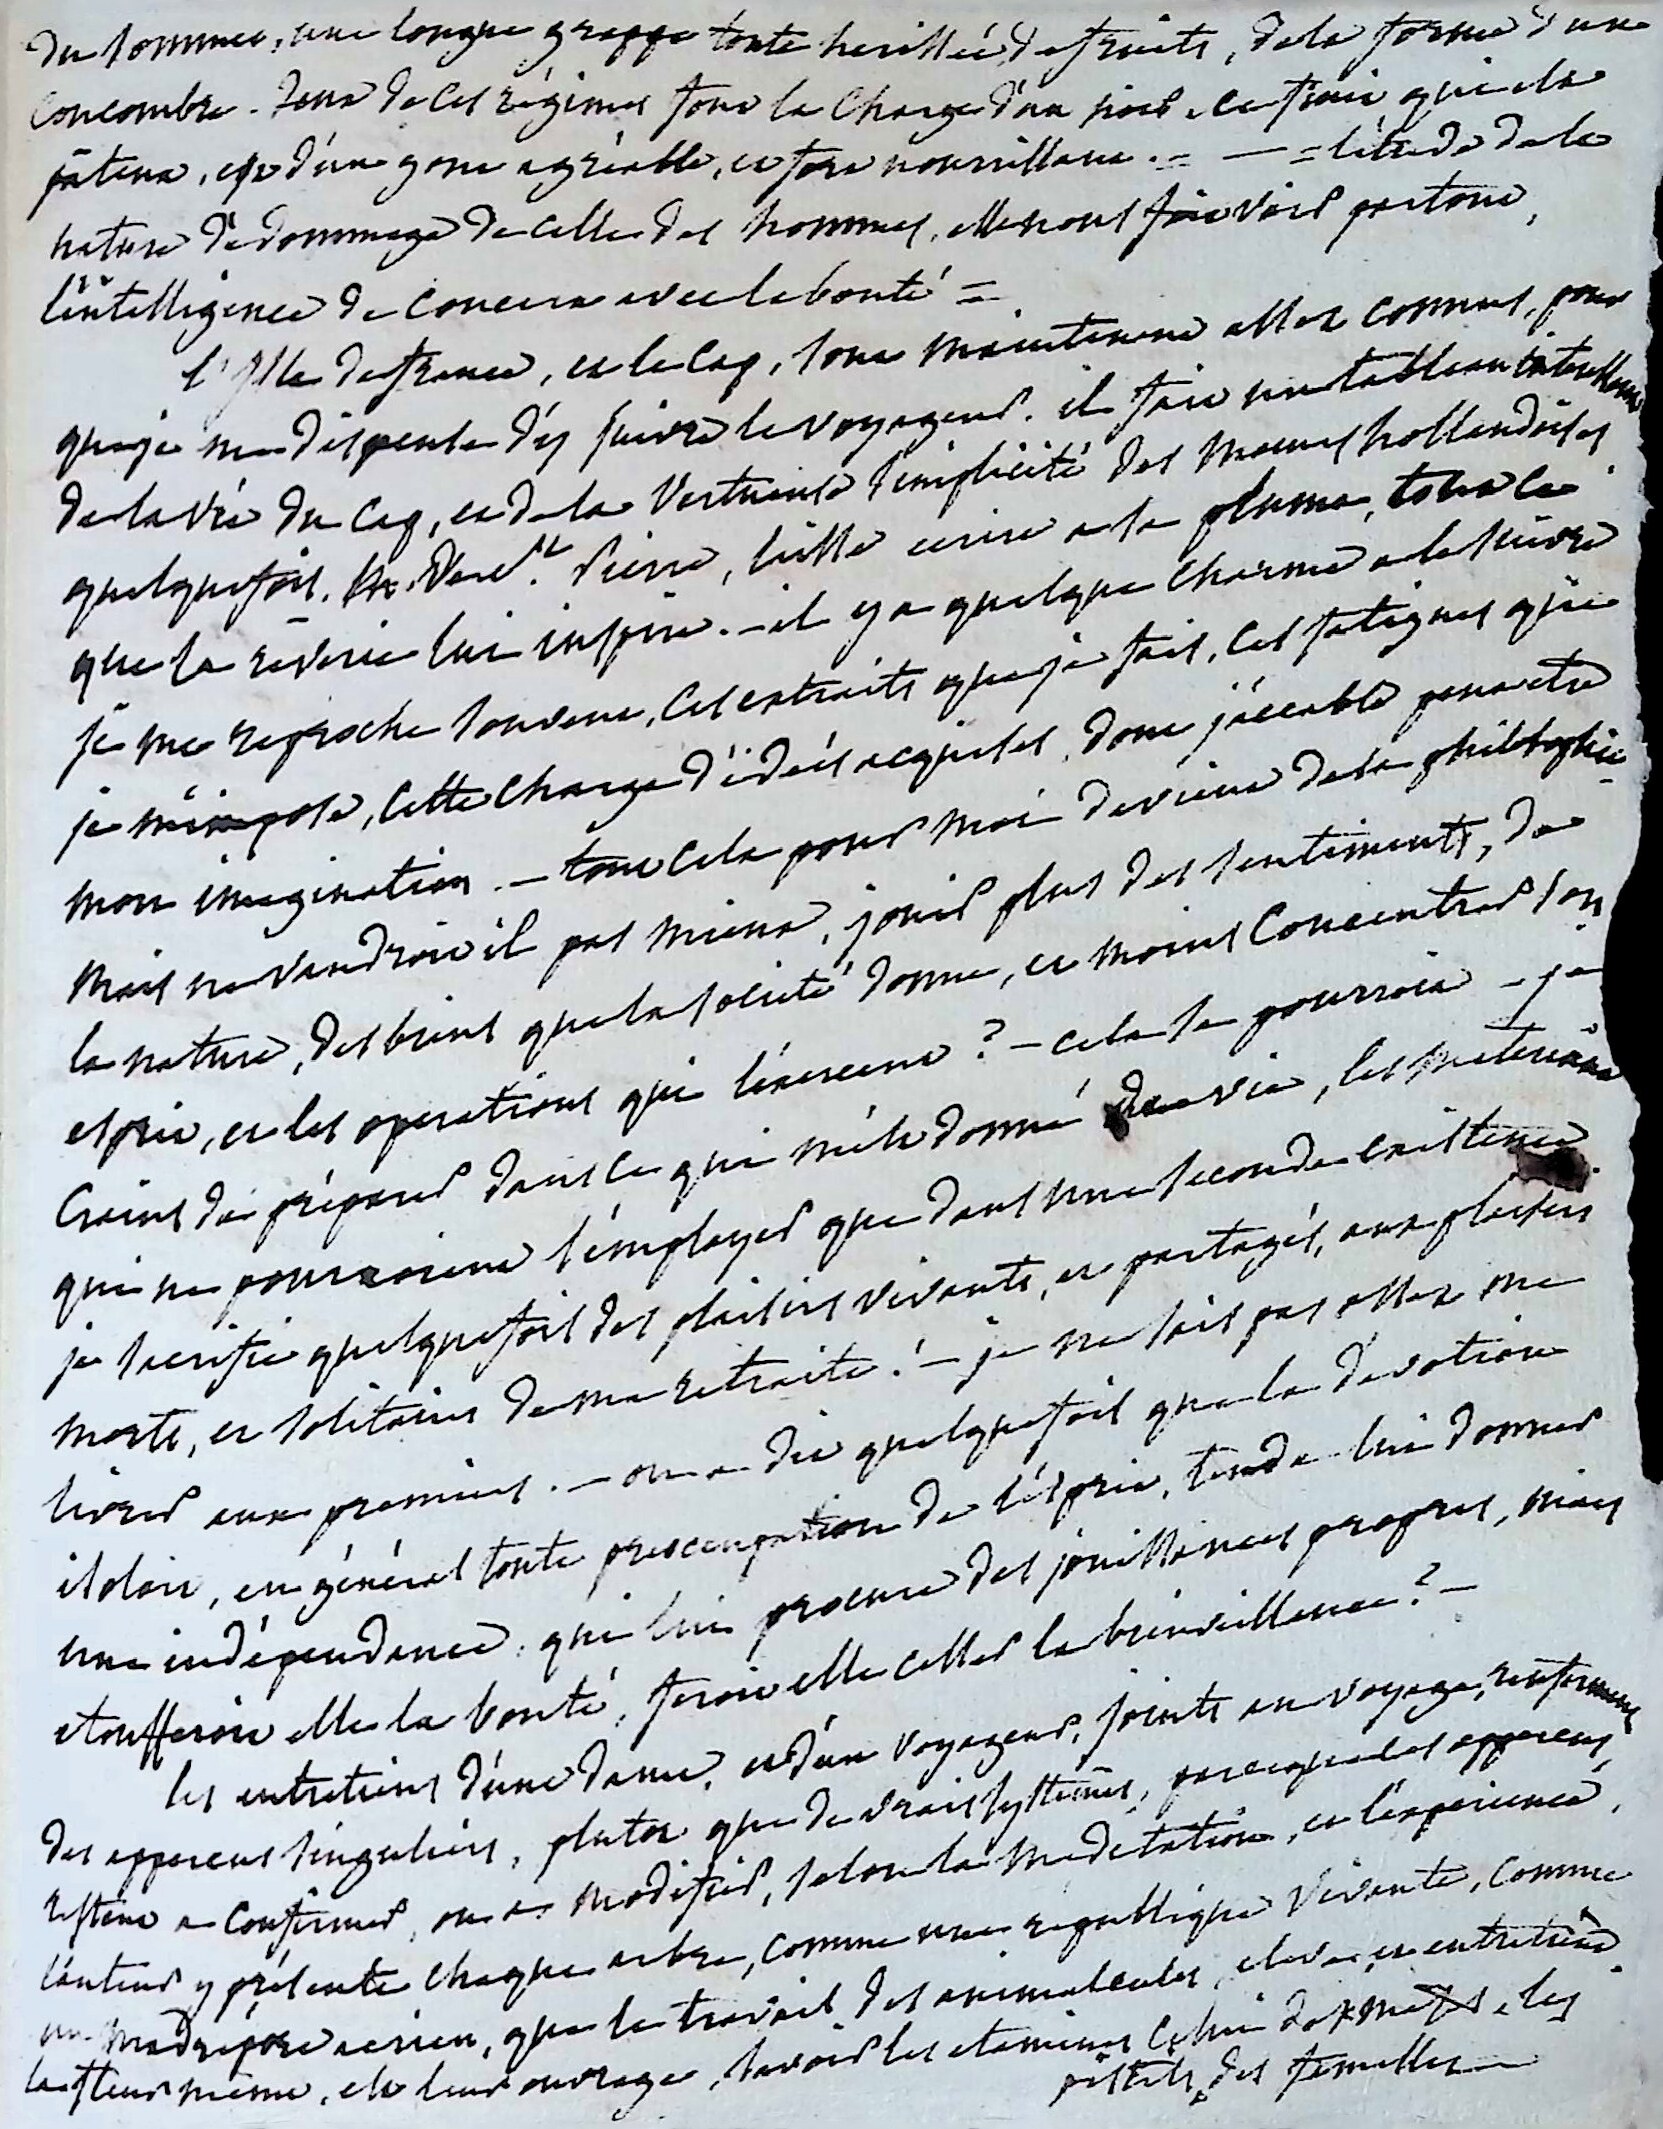 du sommet, une longue grappe toute herissée de fruits, de la forme d'un
concombre. deux de ces régimes font la charge d'un noir. ce fruit qui est
pâteux, est d'un gout agréable, et fort nourrissant. = — = l'étude de la
nature dédommage de celle des hommes, elle nous fait voir partout,
l'intelligence de concert avec la bonté =
l'Isle de france, et le Cap, sont maintenant assez connus, pour
que je me dispense d'y suivre le voyageur. il fait un tableau interessant
de la vie du Cap, et de la vertueuse simplicité des moeurs hollandoises
quelquefois. M. de St. Pierre, laisse ecrire a sa plume, tout ce
que sa rêverie lui inspire. – il y a quelque charme a le suivre
je me reproche souvent, ces extraits que je fais, ces fatigues que
je m'impose, cette charge d'idées acquises, dont j'accable peut etre
mon imagination. – tout cela pour moi devient de la philosophie
mais ne vaudroit il pas mieux, jouir plus des sentiments, de
la nature, des biens que la société donne, et moins concentrer son
esprit, et les operations qui l'exercent ? – cela se pourroit – je
crains de préparer dans ce qui m'est donné de vie, les materiaux
qui ne pourroient s'employer que dans une seconde existence
je sacrifie quelquefois des plaisirs vivants, et partagés, aux plaisirs
morts, et solitaires de ma retraite ! – je ne sais pas assez me
livrer aux premiers. – on a dit quelquefois que la dévotion
isoloit, en général toute preoccupation de l'esprit, tend a lui donner
une indépendance, qui lui procure des jouissances propres, mais
etoufferoit elle la bonté, feroit elle cesser la bienveillance ? –
les entretiens d'une dame, et d'un voyageur, joints au voyage, renferment
des apperçus singuliers, plutot que de vrais systemes, parceque les apperçus,
restent a confirmer, ou a modifier, selon la meditation, et l'experience,
l'auteur y présente chaque arbre, comme une republique vivante, comme
un madrépore aerien, que le travail des animalcules, eleve, et entretient
la fleur même, est leur ouvrage, savoir les etamines celui des mâles, les
pistils, des femelles –